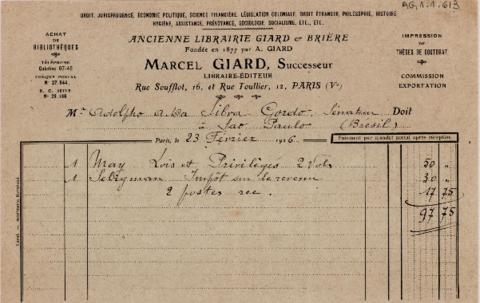 AG.1.1.613
DROIT, JURISPRUDENCE, ÉCONOMIE POLITIQUE, SCIENCE FINANCIÈRE, LÉGISLATION COLONIALE, DROIT ÉTRANGER, PHILOSOPHIE, HISTOIRE
HYGIÈNE, ASSISTANCE, PRÉVOYANCE, SOCIOLOGIE, SOCIALISME, ETC., ETC.
ANCIENNE LIBRAIRIE GIARD & BRIÈRE
Fondée en 1877 par A. GIARD
MARCEL GIARD, Successeur
LIBRAIRE-ÉDITEUR
Rue Soufflot, 16, et Rue Toullier, 12, PARIS (Ve)
ACHAT
DE
BIBLIOTHÈQUES
TÉLÉPHONE
CHÈQUE POSTAL
R. C. SEINE
IMPRESSION
DE
THÈSES DE DOCTORAT
COMMISSION
EXPORTATION
Mr Adolpho da Silva Gordo, Sénateur Doit
à Sao Paulo (Brésil)
Paris, le 23 Février 1926
Paiement par mandat postal après réception.
1 May Lois et Privilèges 2 Vols 50 "
1 Seligman Impôt sur le revenu 30 "
2 postes rec. 17 75
97 75